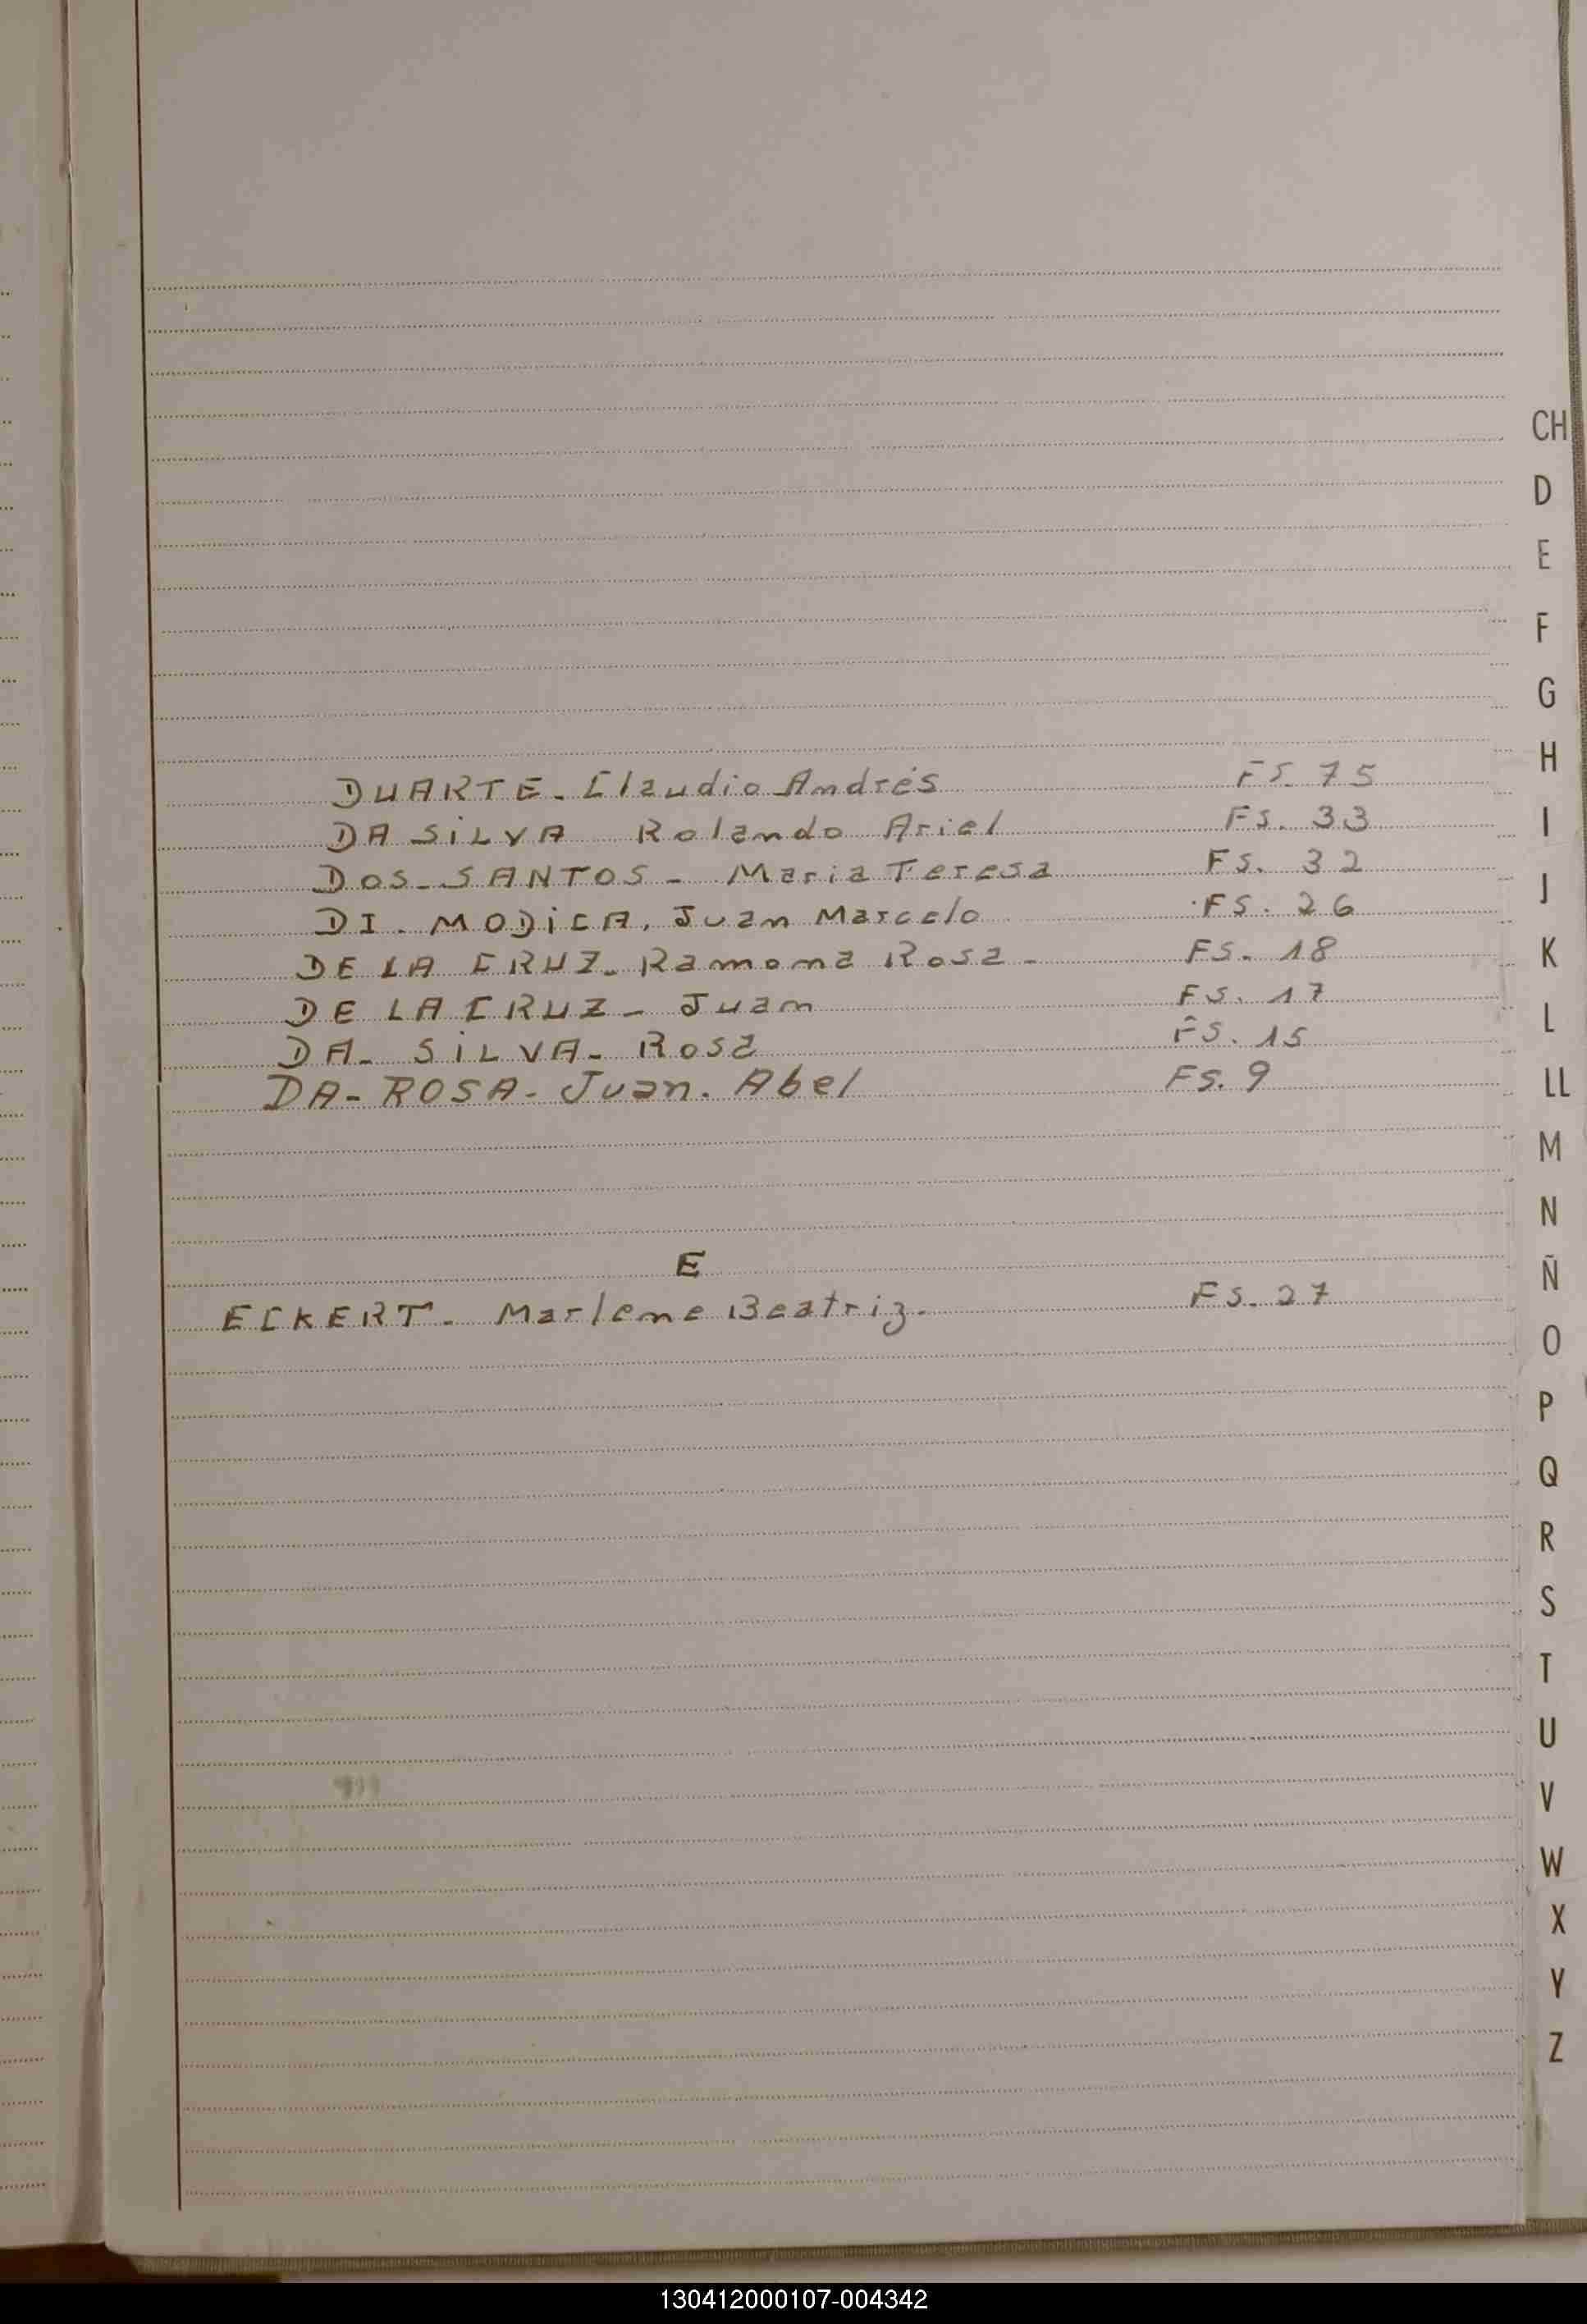 DUARTE - Claudio Andrés Fs. 75
DA SiLVA Rolando Ariel Fs. 33
DOS - SANTOS - Maria Teresa Fs. 32
DI - MODiCA, Juan Marcelo Fs. 26
DE LA CRUZ - Ramona Rosa - Fs. 18
DE LA CRUZ - Juan Fs. 17
DA - SiLVA - Rosa Fs. 15
DA - ROSA - Juan. Abel Fs. 9
E
ECKERT - Marlene Beatriz - Fs. 27
CH
D
E
F
G
H
I
J
K
L
LL
M
N
Ñ
O
P
Q
R
S
T
U
V
W
X
Y
Z
130412000107-004342